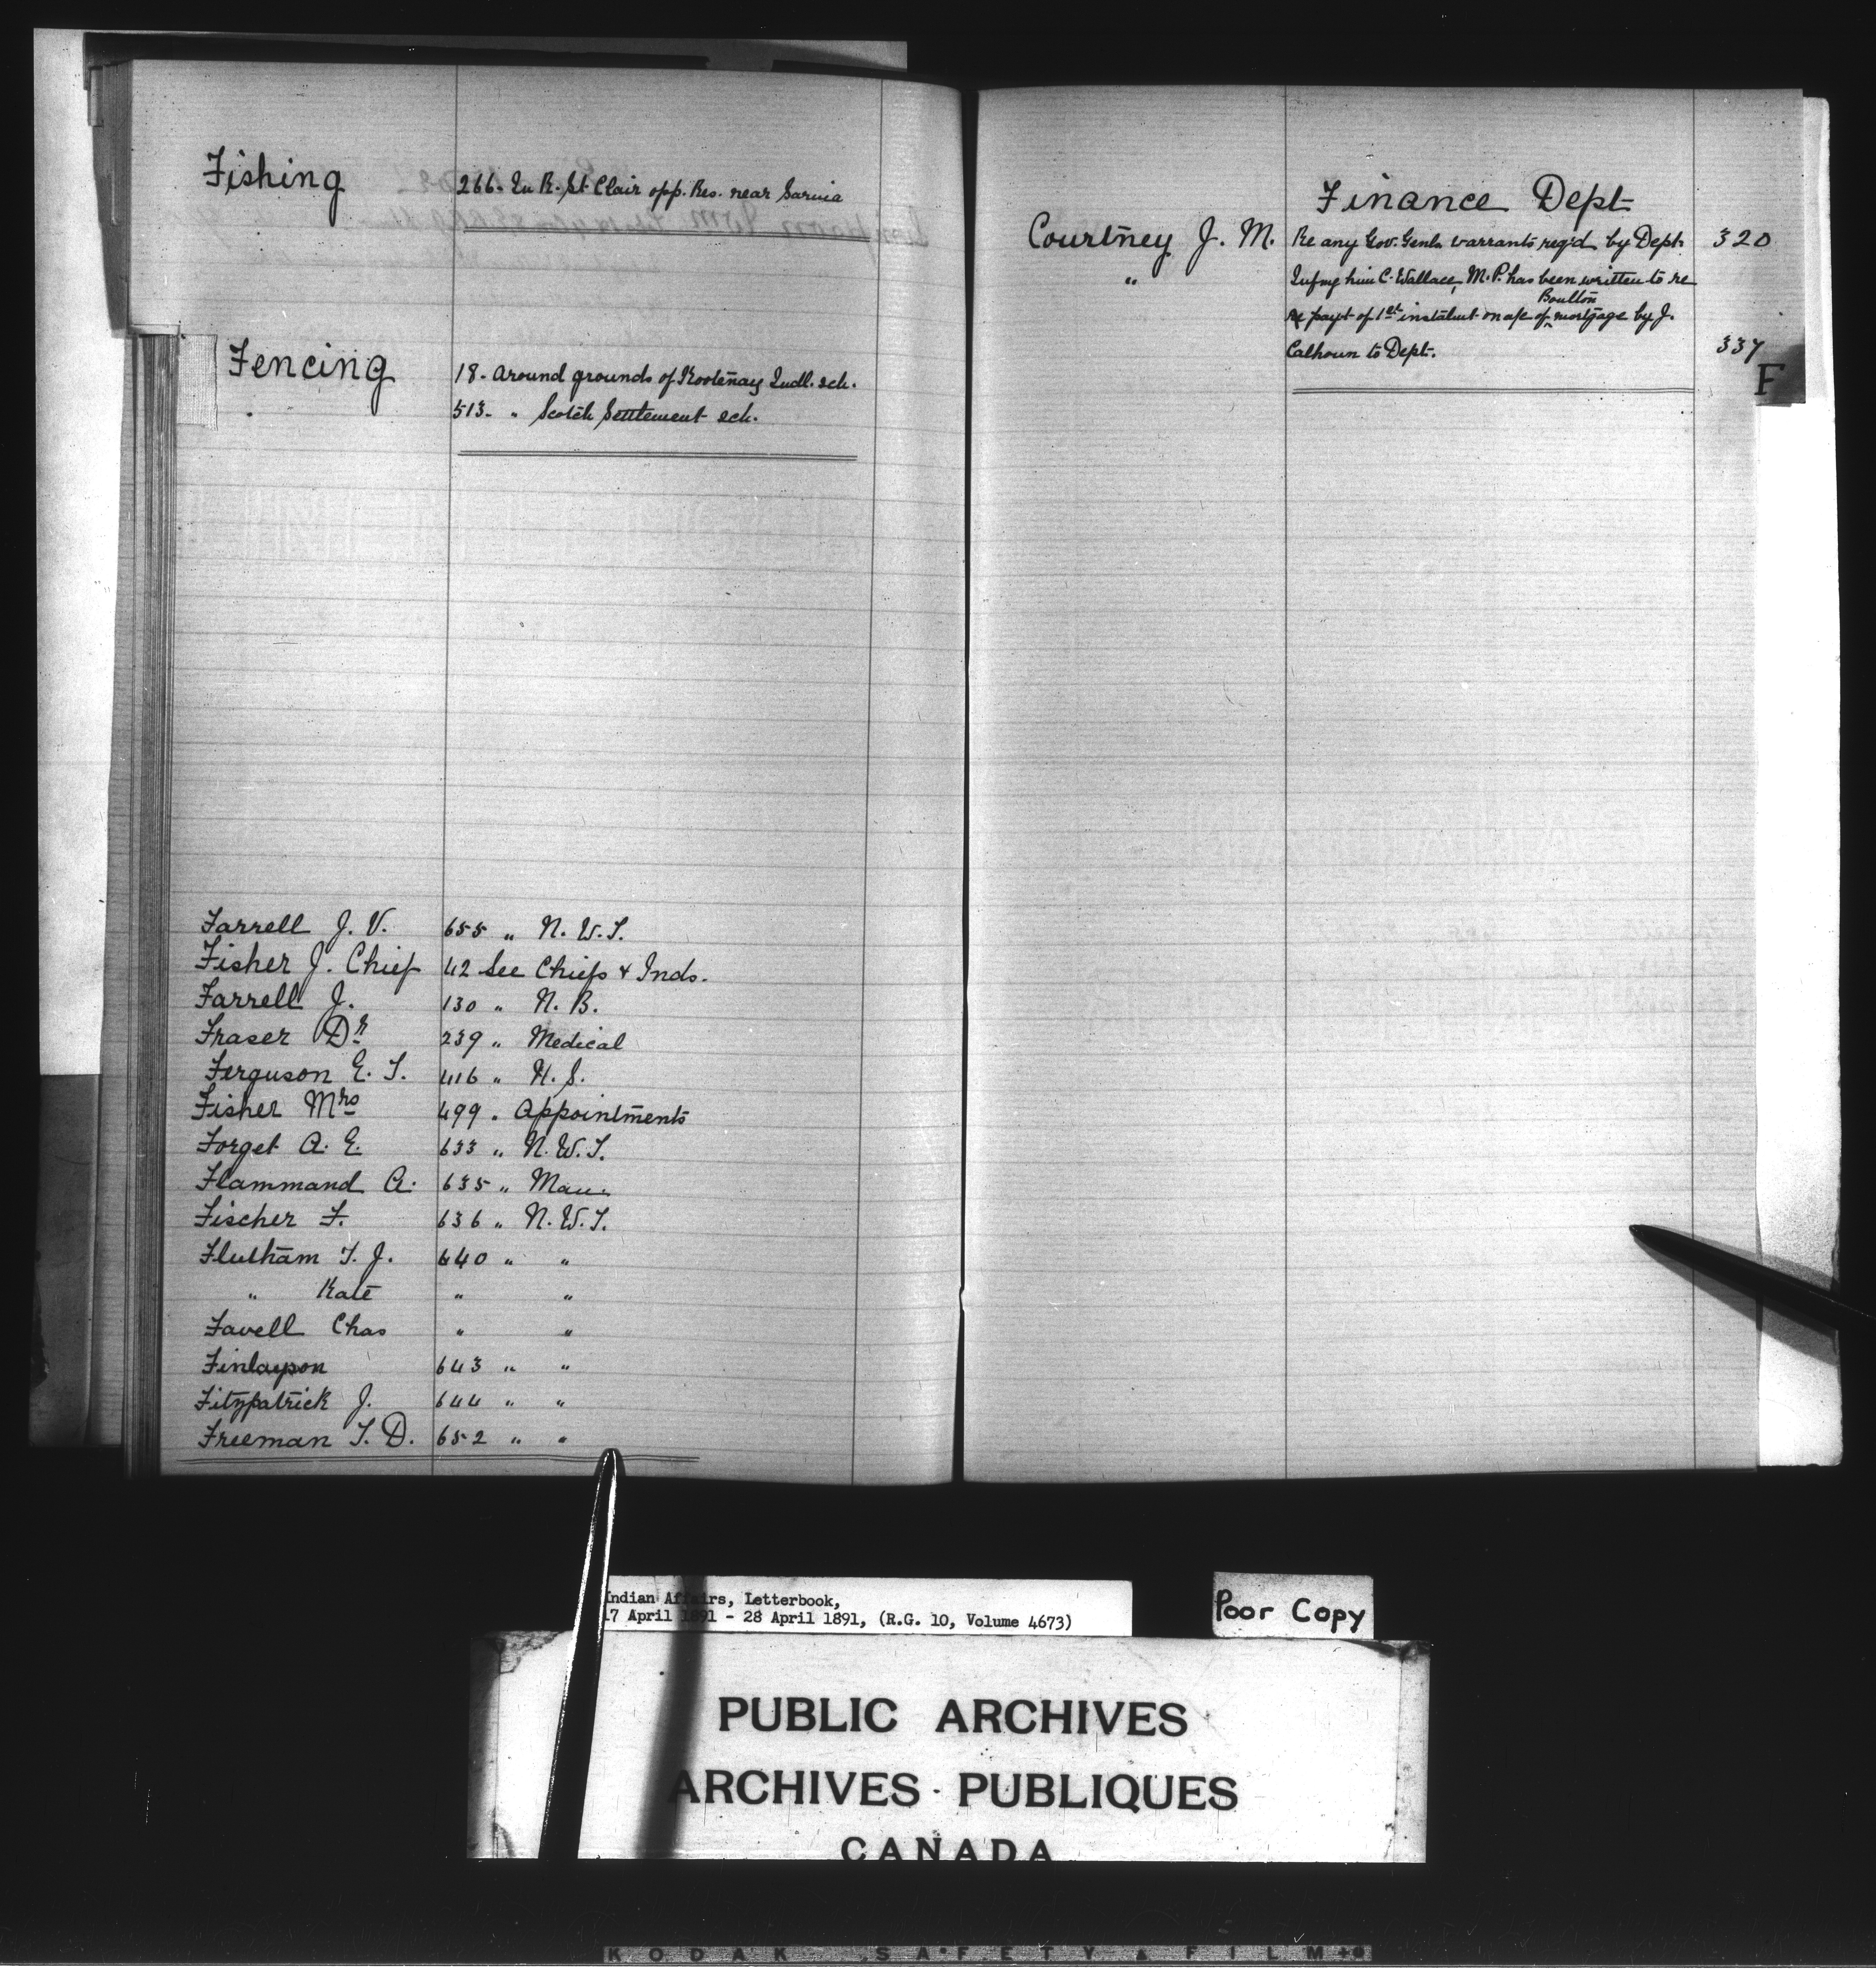 Fishing
266. In R. St. Clair opp. Res. near Sarnia
Fencing
18. Around grounds of Kootenay Indl. sch.
513. " Scotch Settlement sch.
Farrell J. V. 655 " N. W. T.
Fisher J. Chief 42 See Chiefs & Inds.
Farrell J. 130 " N. B.
Fraser Dr 239 " Medical
Ferguson E. T. 416 " N. S.
Fisher Mrs 499 " Appointments
Forget A. E. 633 " N. W. T.
Flammand A. 635 " Man.
Fischer F. 636 " N. W. T.
Fleetham T. J. 640 " "
" Kate " "
Favell Chas " "
Finlayson 643 " "
Fitzpatrick J. 644 " "
Freeman T. D. 652 " "
Finance Dept
Courtney J. M. Re any Gov. Genls warrants reqd by Dept. 320
" Infmg him C. Wallace, M. P. has been written to re
Boulton
payt of 1st instalmt on a/c of mortgage by J.
Calhoun to Dept. 337
F
Indian Affairs, Letterbook,
17 April 1891 - 28 April 1891, (R.G. 10, Volume 4673)
Poor Copy
PUBLIC ARCHIVES
ARCHIVES PUBLIQUES
CANADA
KODAK SAFETY FILM